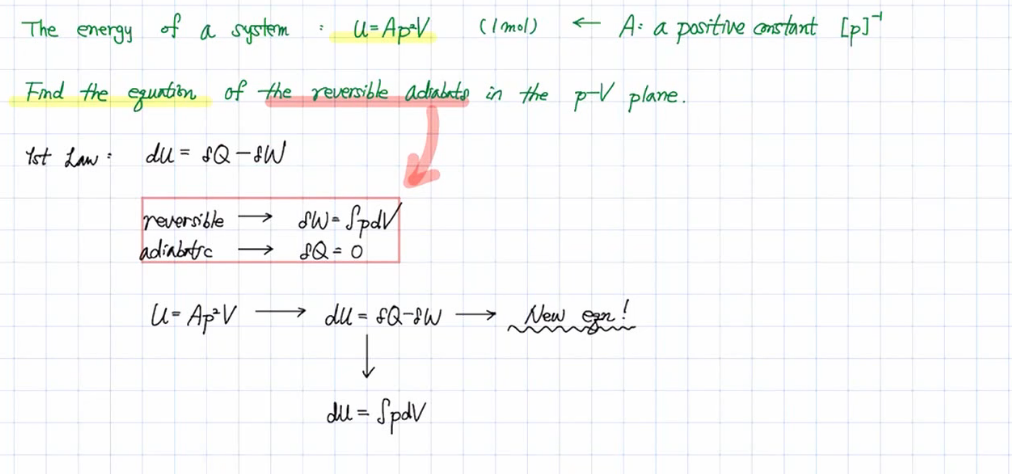 The energy of a system : U=Ap²V (1mol) ← A: a positive constant [p]⁻¹
Find the equation of the reversible adiabats in the p-V plane.
1st Law: dU = δQ - δW
reversible → δW = ∫pdV
adiabatic → δQ = 0
U = Ap²V → dU = δQ-δW → New eqn!
↓
dU = ∫pdV